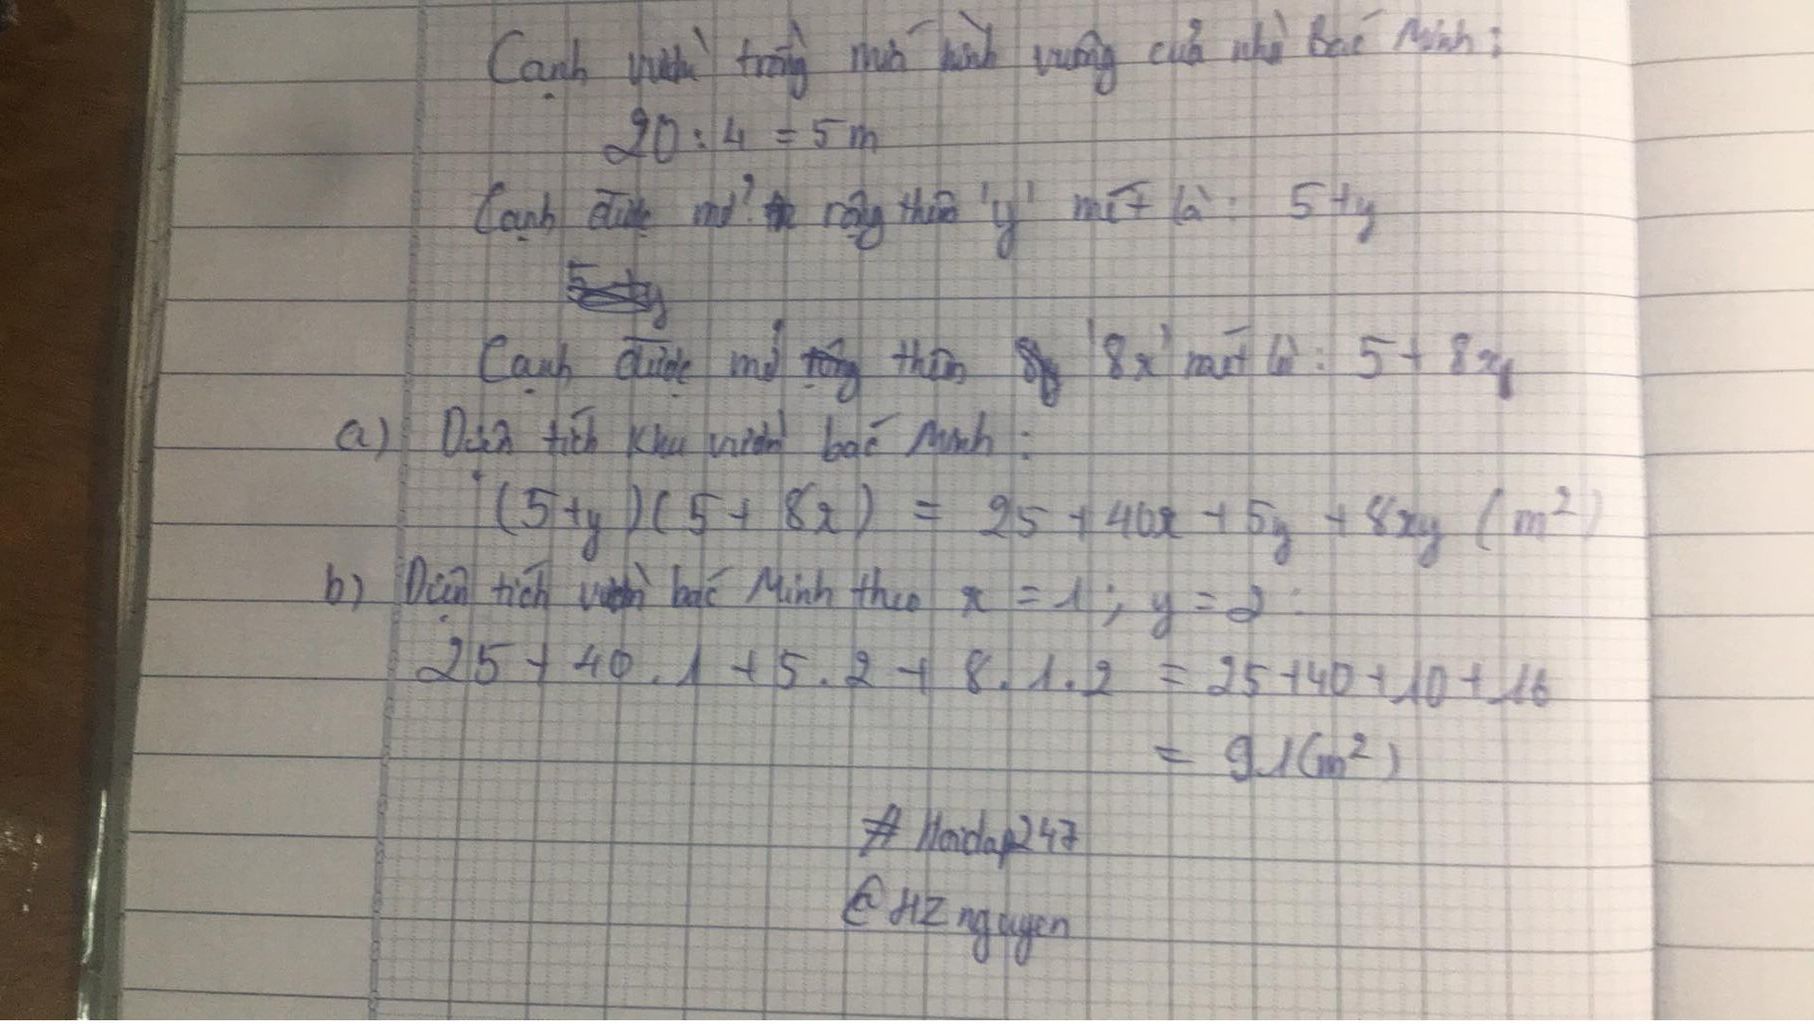 Cạnh vườn trồng mía hình vuông của nhà Bác Minh:
20 : 4 = 5 m
Cạnh được mở rộng thêm 'y' mét là: 5 + y
5 + y
Cạnh được mở rộng thêm '8x' mét là: 5 + 8x
a) Diện tích khu vườn bác Minh:
(5+y)(5+8x) = 25 + 40x + 5y + 8xy (m²)
b) Diện tích vườn bác Minh theo x = 1; y = 2:
25 + 40.1 + 5.2 + 8.1.2 = 25+40+10+16
= 91(m²)
# Hoidap247
@HZnguyen